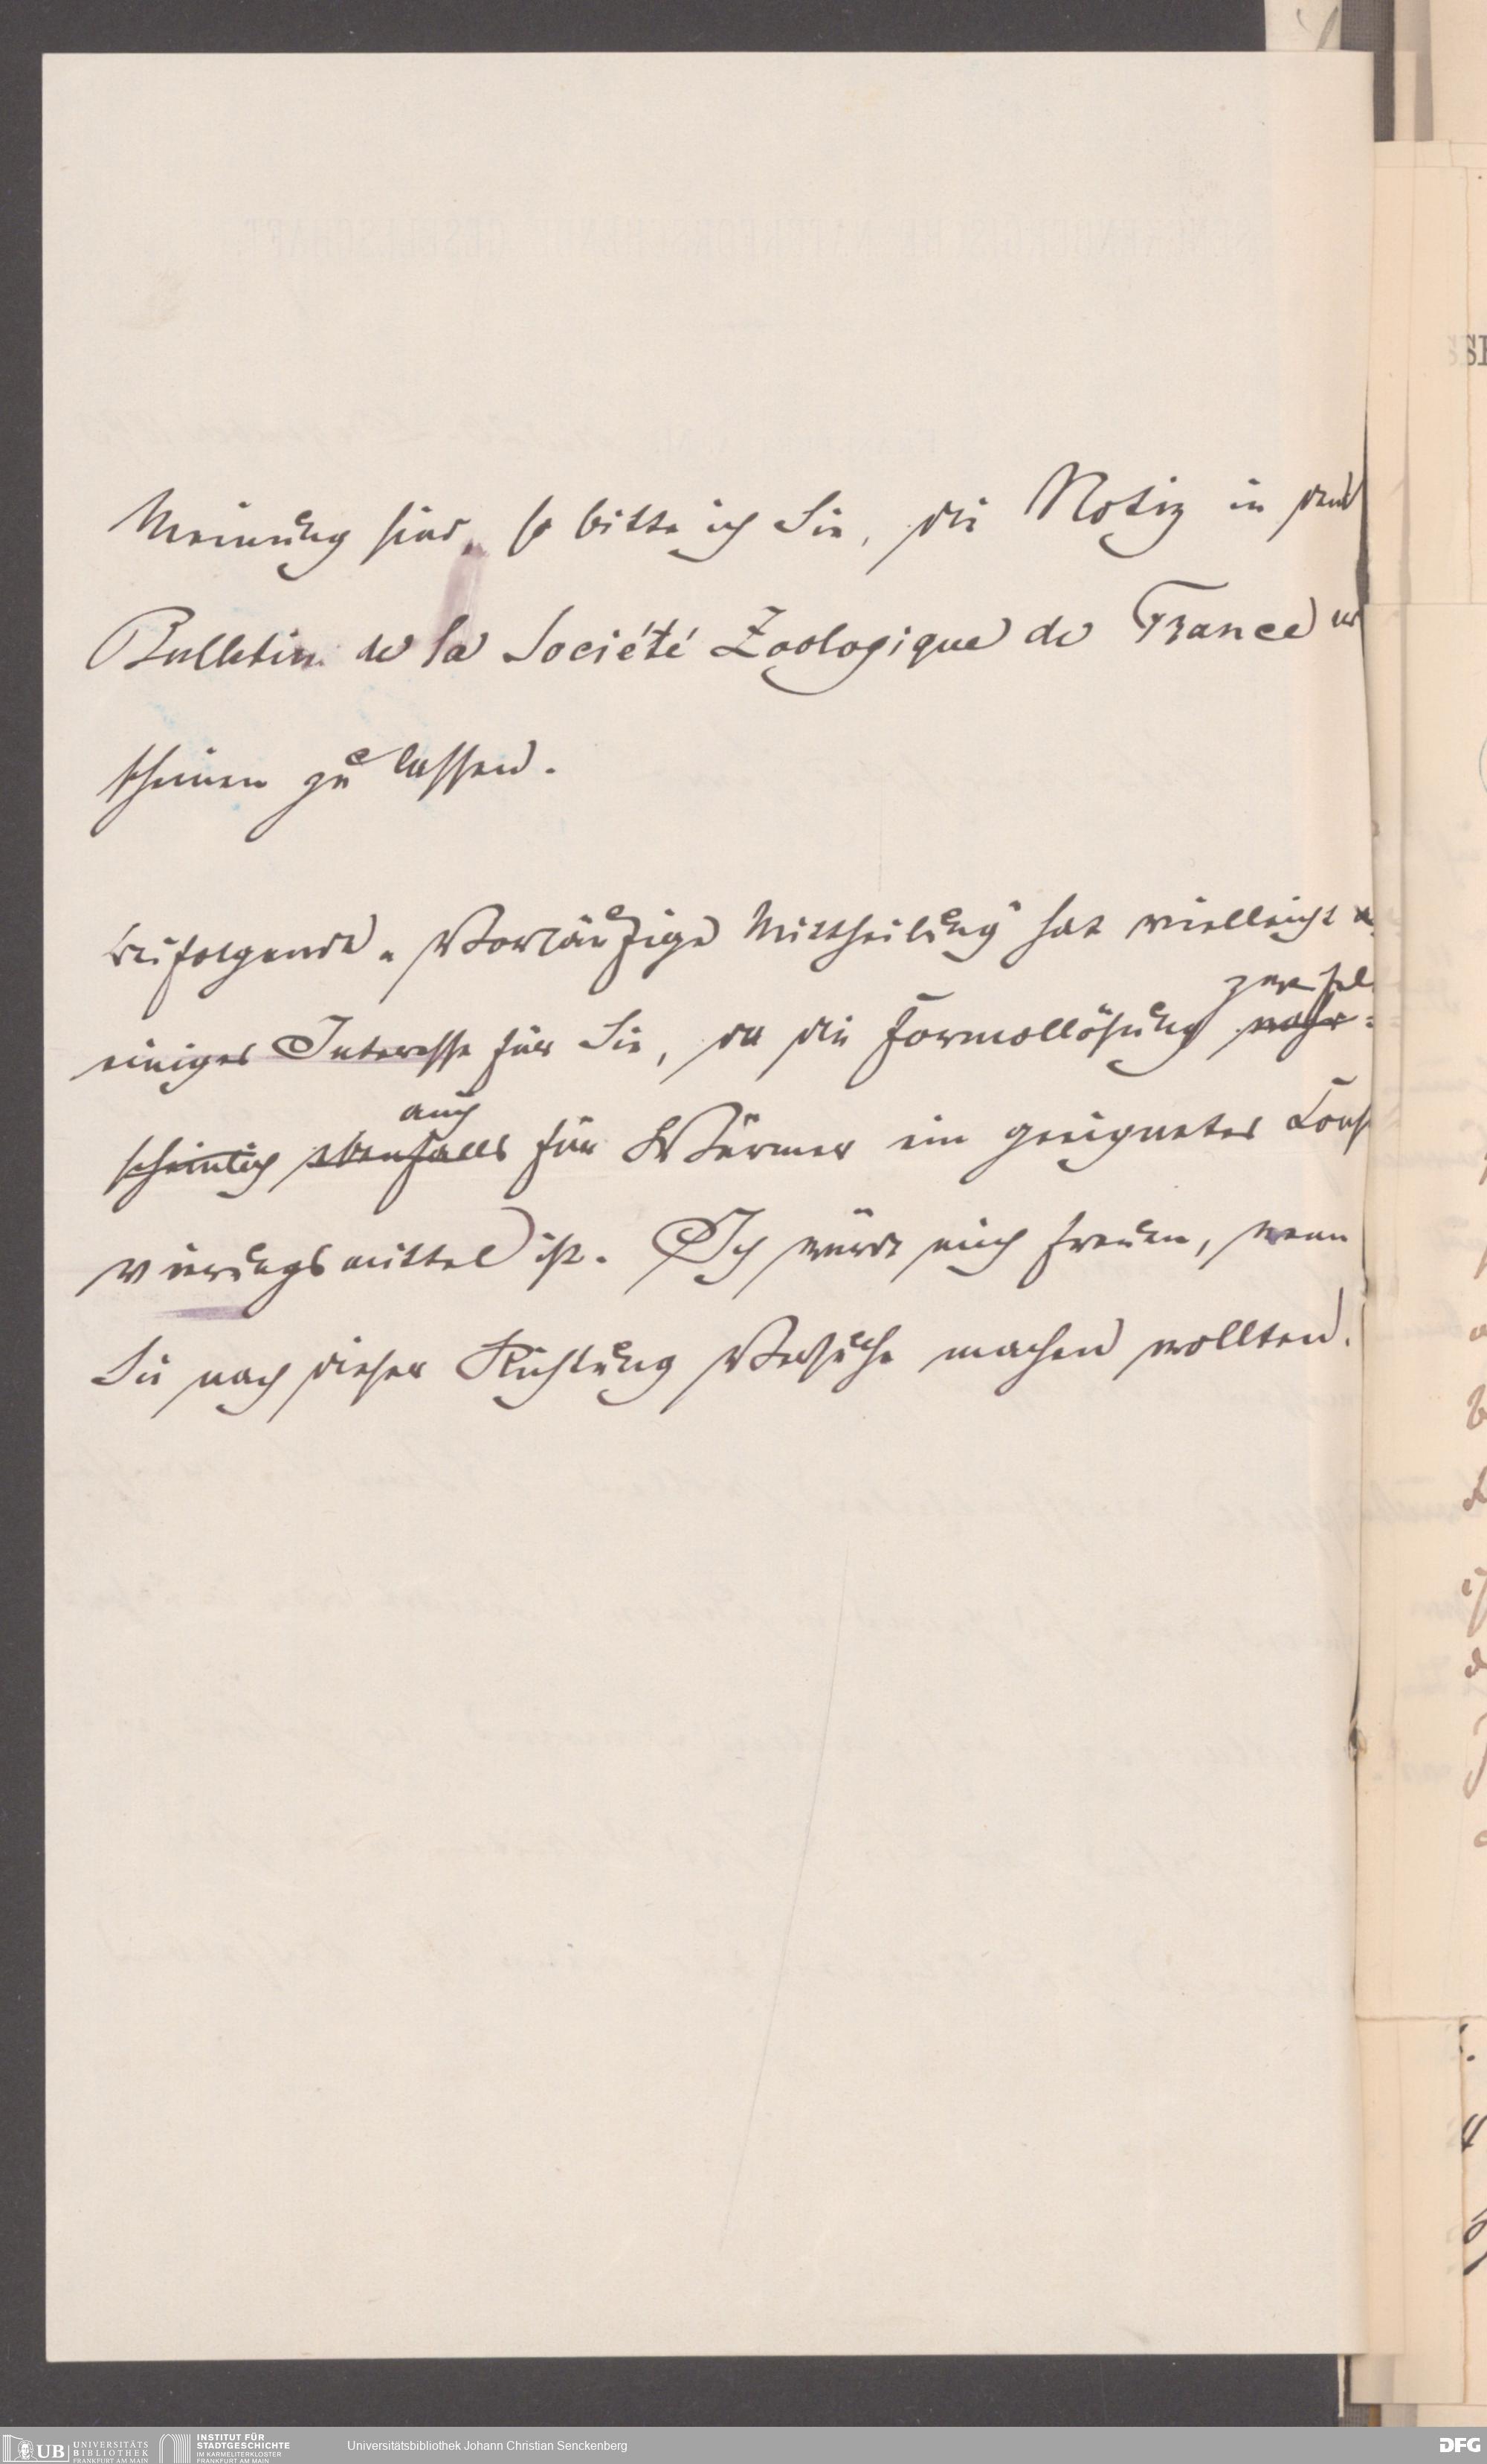 Meinung sind, so bitte ich Sie, die Notiz in dem
Bulletin de la Société Zoologique de France er
scheinen zu lassen.
Beifolgende „Vorläufige Mittheilung" hat vielleicht
einiges Interesse für Sie, da die Formollösung wahr-
scheinlich ebenfalls auch für Würmer ein geeignetes Cons
virungsmittel ist. Ich würde mich freuen, wenn
Sie nach dieser Richtung Versuche machen wollten.
UB UNIVERSITÄTS
BIBLIOTHEK
FRANKFURT AM MAIN
INSTITUT FÜR
STADTGESCHICHTE
IM KARMELITERKLOSTER
FRANKFURT AM MAIN
Universitätsbibliothek Johann Christian Senckenberg
DFG